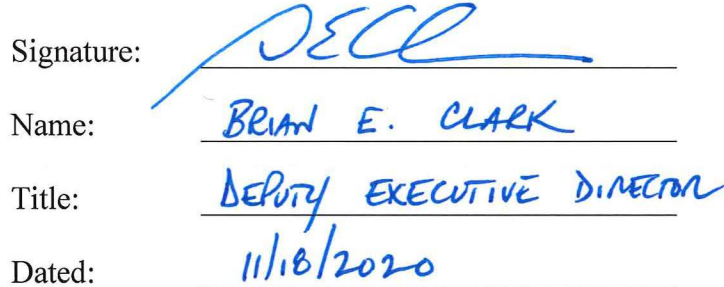 Signature:
Name: BRIAN E. CLARK
Title: DEPUTY EXECUTIVE DIRECTOR
Dated: 11/18/2020